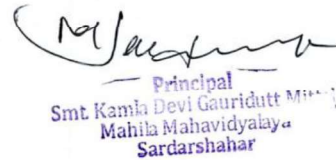 Principal
Smt. Kamla Devi Gauridutt
Mahila Mahavidyalaya
Sardarshahar